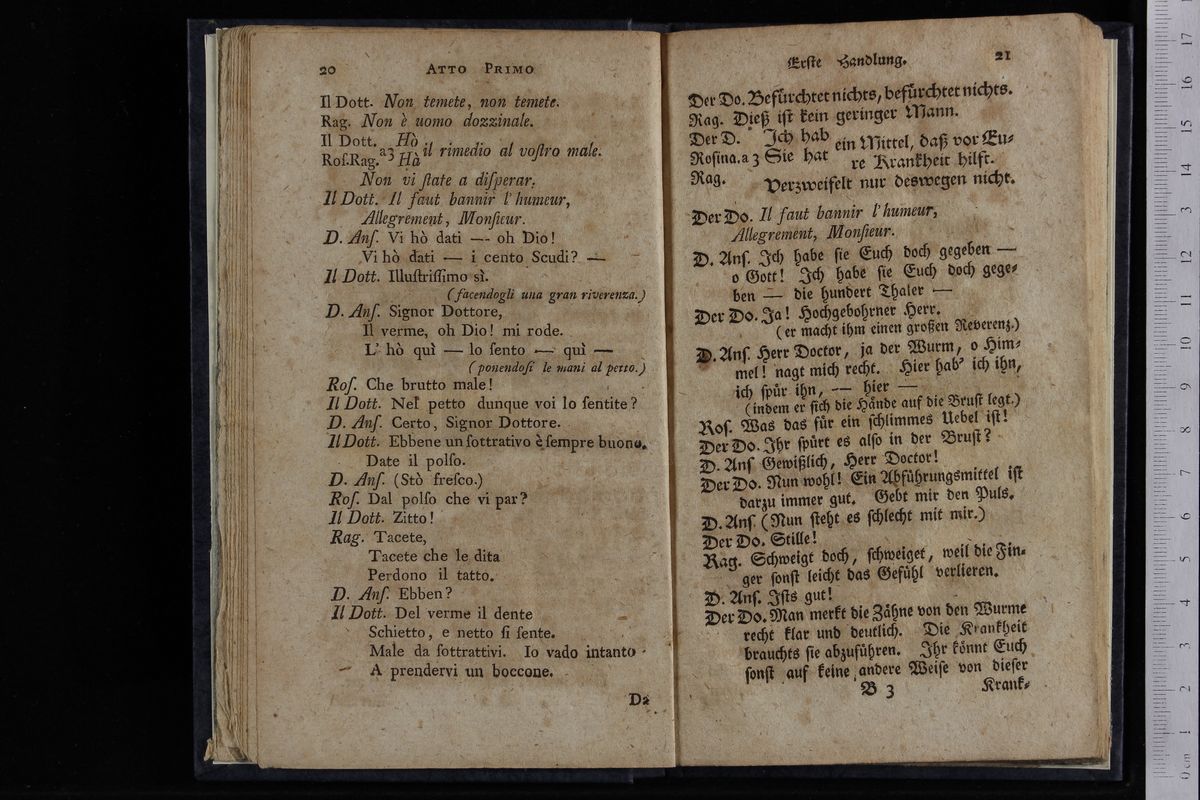 20 ATTO PRIMO
Il Dott. Non temete, non temete.
Rag. Non è uomo dozzinale.
Il Dott. Hò
Roſ.Rag. a3 Hà il rimedio al voſtro male.
Non vi ſtate a diſperar.
Il Dott. Il faut bannir l' humeur,
Allegrement, Monſieur.
D. Anſ. Vi hò dati — oh Dio!
Vi hò dati — i cento Scudi? —
Il Dott. Illuſtriſſimo sì.
(facendogli una gran riverenza.)
D. Anſ. Signor Dottore,
Il verme, oh Dio! mi rode.
L' hò quì — lo ſento — quì —
(ponendoſi le mani al petto.)
Roſ. Che brutto male!
Il Dott. Nel petto dunque voi lo ſentite?
D. Anſ. Certo, Signor Dottore.
Il Dott. Ebbene un ſottrativo è ſempre buono.
Date il polſo.
D. Anſ. (Stò freſco.)
Roſ. Dal polſo che vi par?
Il Dott. Zitto!
Rag. Tacete,
Tacete che le dita
Perdono il tatto.
D. Anſ. Ebben?
Il Dott. Del verme il dente
Schietto, e netto ſi ſente.
Male da ſottrattivi. Io vado intanto
A prendervi un boccone.
Da
Erſte Handlung. 21
Der Do. Befürchtet nichts, befürchtet nichts.
Rag. Dieß iſt kein geringer Mann.
Der D. Ich hab ein Mittel, daß vor Eu⸗
Roſina. a 3 Sie hat re Krankheit hilft.
Rag. Verzweifelt nur deswegen nicht.
Der Do. Il faut bannir l' humeur,
Allegrement, Monſieur.
D. Anſ. Ich habe ſie Euch doch gegeben —
o Gott! Ich habe ſie Euch doch gege⸗
ben — die hundert Thaler —
Der Do. Ja! Hochgebohrner Herr.
(er macht ihm einen großen Reverenz.)
D. Anſ. Herr Doctor, ja der Wurm, o Him⸗
mel! nagt mich recht. Hier hab' ich ihn,
ich ſpür ihn, — hier —
(indem er ſich die Hände auf die Bruſt legt.)
Roſ. Was das für ein ſchlimmes Uebel iſt!
Der Do. Ihr ſpürt es alſo in der Bruſt?
D. Anſ Gewißlich, Herr Doctor!
Der Do. Nun wohl! Ein Abführungsmittel iſt
darzu immer gut. Gebt mir den Puls.
D. Anſ. (Nun ſteht es ſchlecht mit mir.)
Der Do. Stille!
Rag. Schweigt doch, ſchweiget, weil die Fin⸗
ger ſonſt leicht das Gefühl verlieren.
D. Anſ. Iſts gut!
Der Do. Man merkt die Zähne von den Wurme
recht klar und deutlich. Die Krankheit
brauchts ſie abzuführen. Ihr könnt Euch
ſonſt auf keine andere Weiſe von dieſer
B 3 Krank⸗
0 cm 1 2 3 4 5 6 7 8 9 10 11 12 13 14 15 16 17